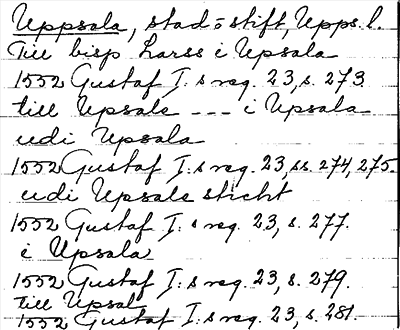 Uppsala, stad o stift, Upps. l.
Till bisp Larss i Upsala
1552 Gustaf I:s reg. 23, s. 273.
till Upsale --- i Upsala
udi Upsala
1552 Gustaf I:s reg. 23, ss. 274, 275.
udi Upsale sticht
1552 Gustaf I:s reg. 23, s. 277.
i Upsala
1552 Gustaf I:s reg. 23, s. 279.
till Upsal
1552 Gustaf I:s reg. 23, s. 281.